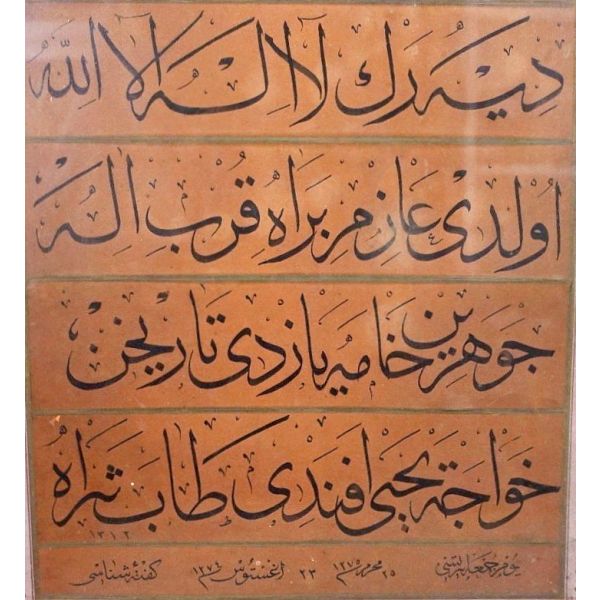 دیه رك لا اله الا الله
اولدی عازم براه قرب اله
جوهرین خامه یازدی تاریخن
خواجه یحیی افندی طاب ثراه
یوم جمعه ایرتسی ٢٥ محرم ١٢٧٥ ٢٣ اغستوس ١٢٧٤ كفتهٔ شناسی